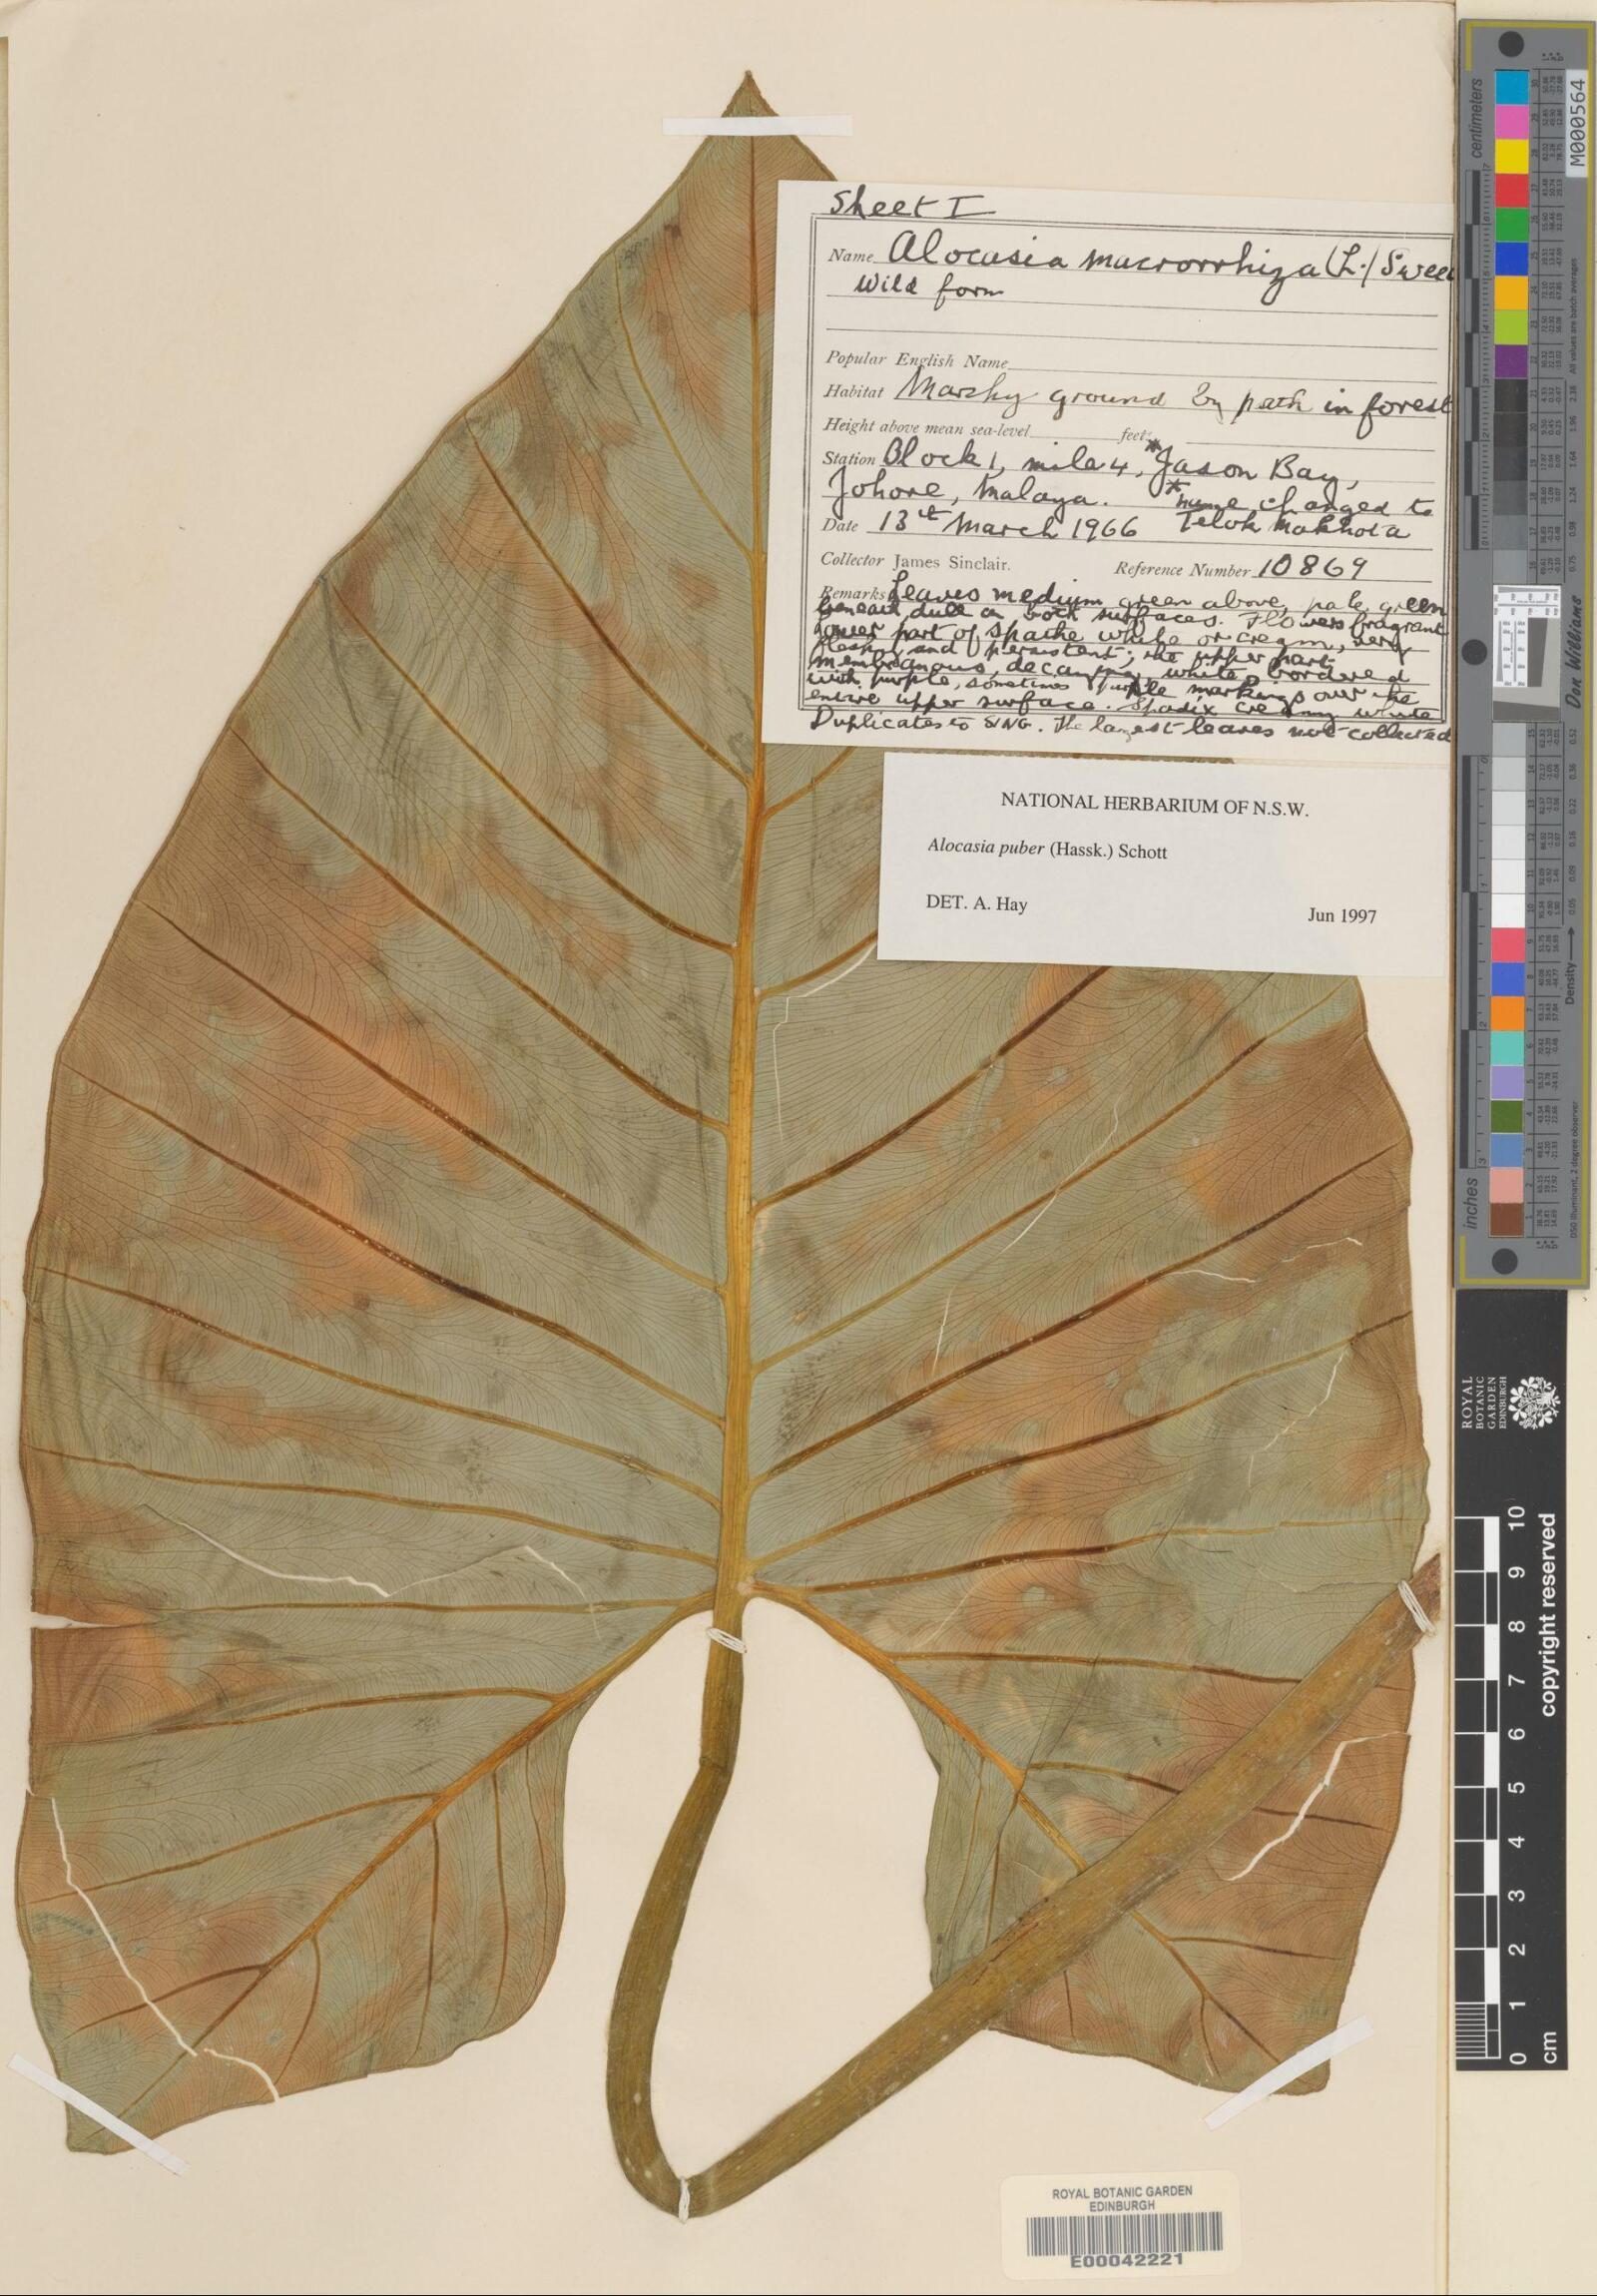 Sheet I
Name Alocasia macrorrhiza (L.) Sweet
Wild form
Popular English Name
Habitat Marshy ground by path in forest
Height above mean sea-level feet
Station Block 1, mile 4, *Jason Bay,
Johore, Malaya. *name changed to
Date 13th March 1966 Telok Mahkota
Collector James Sinclair. Reference Number 10869
Remarks Leaves medium green above, pale green
beneath, dull on both surfaces. Flowers fragrant
lower part of spathe white or cream, very
fleshy and persistent; the upper part
membranous, decaying, white, bordered
with purple, sometimes purple markings over the
entire upper surface. Spadix creamy white
Duplicates to SING. The largest leaves not collected
NATIONAL HERBARIUM OF N.S.W.
Alocasia puber (Hassk.) Schott
DET. A. Hay Jun 1997
ROYAL BOTANIC GARDEN
EDINBURGH
E00042221
centimeters
M000564
Don Williams
Density
inches
ROYAL
BOTANIC
GARDEN
EDINBURGH
0 1 2 3 4 5 6 7 8 9 10
cm
copyright reserved